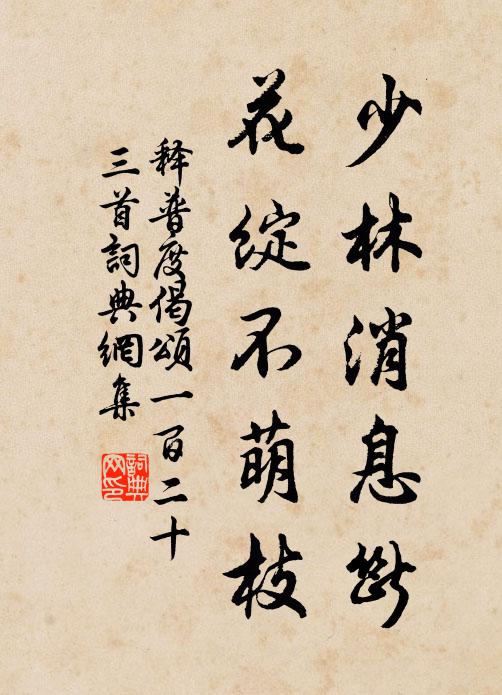 少林消息断
花绽不萌枝
释普度偈颂一百二十
三首詞典網集
詞典
网印